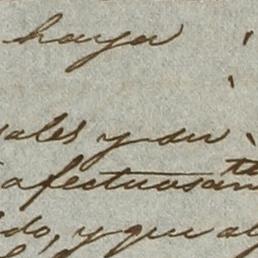 haya
ales y su
afectuosam^te
do, y que al